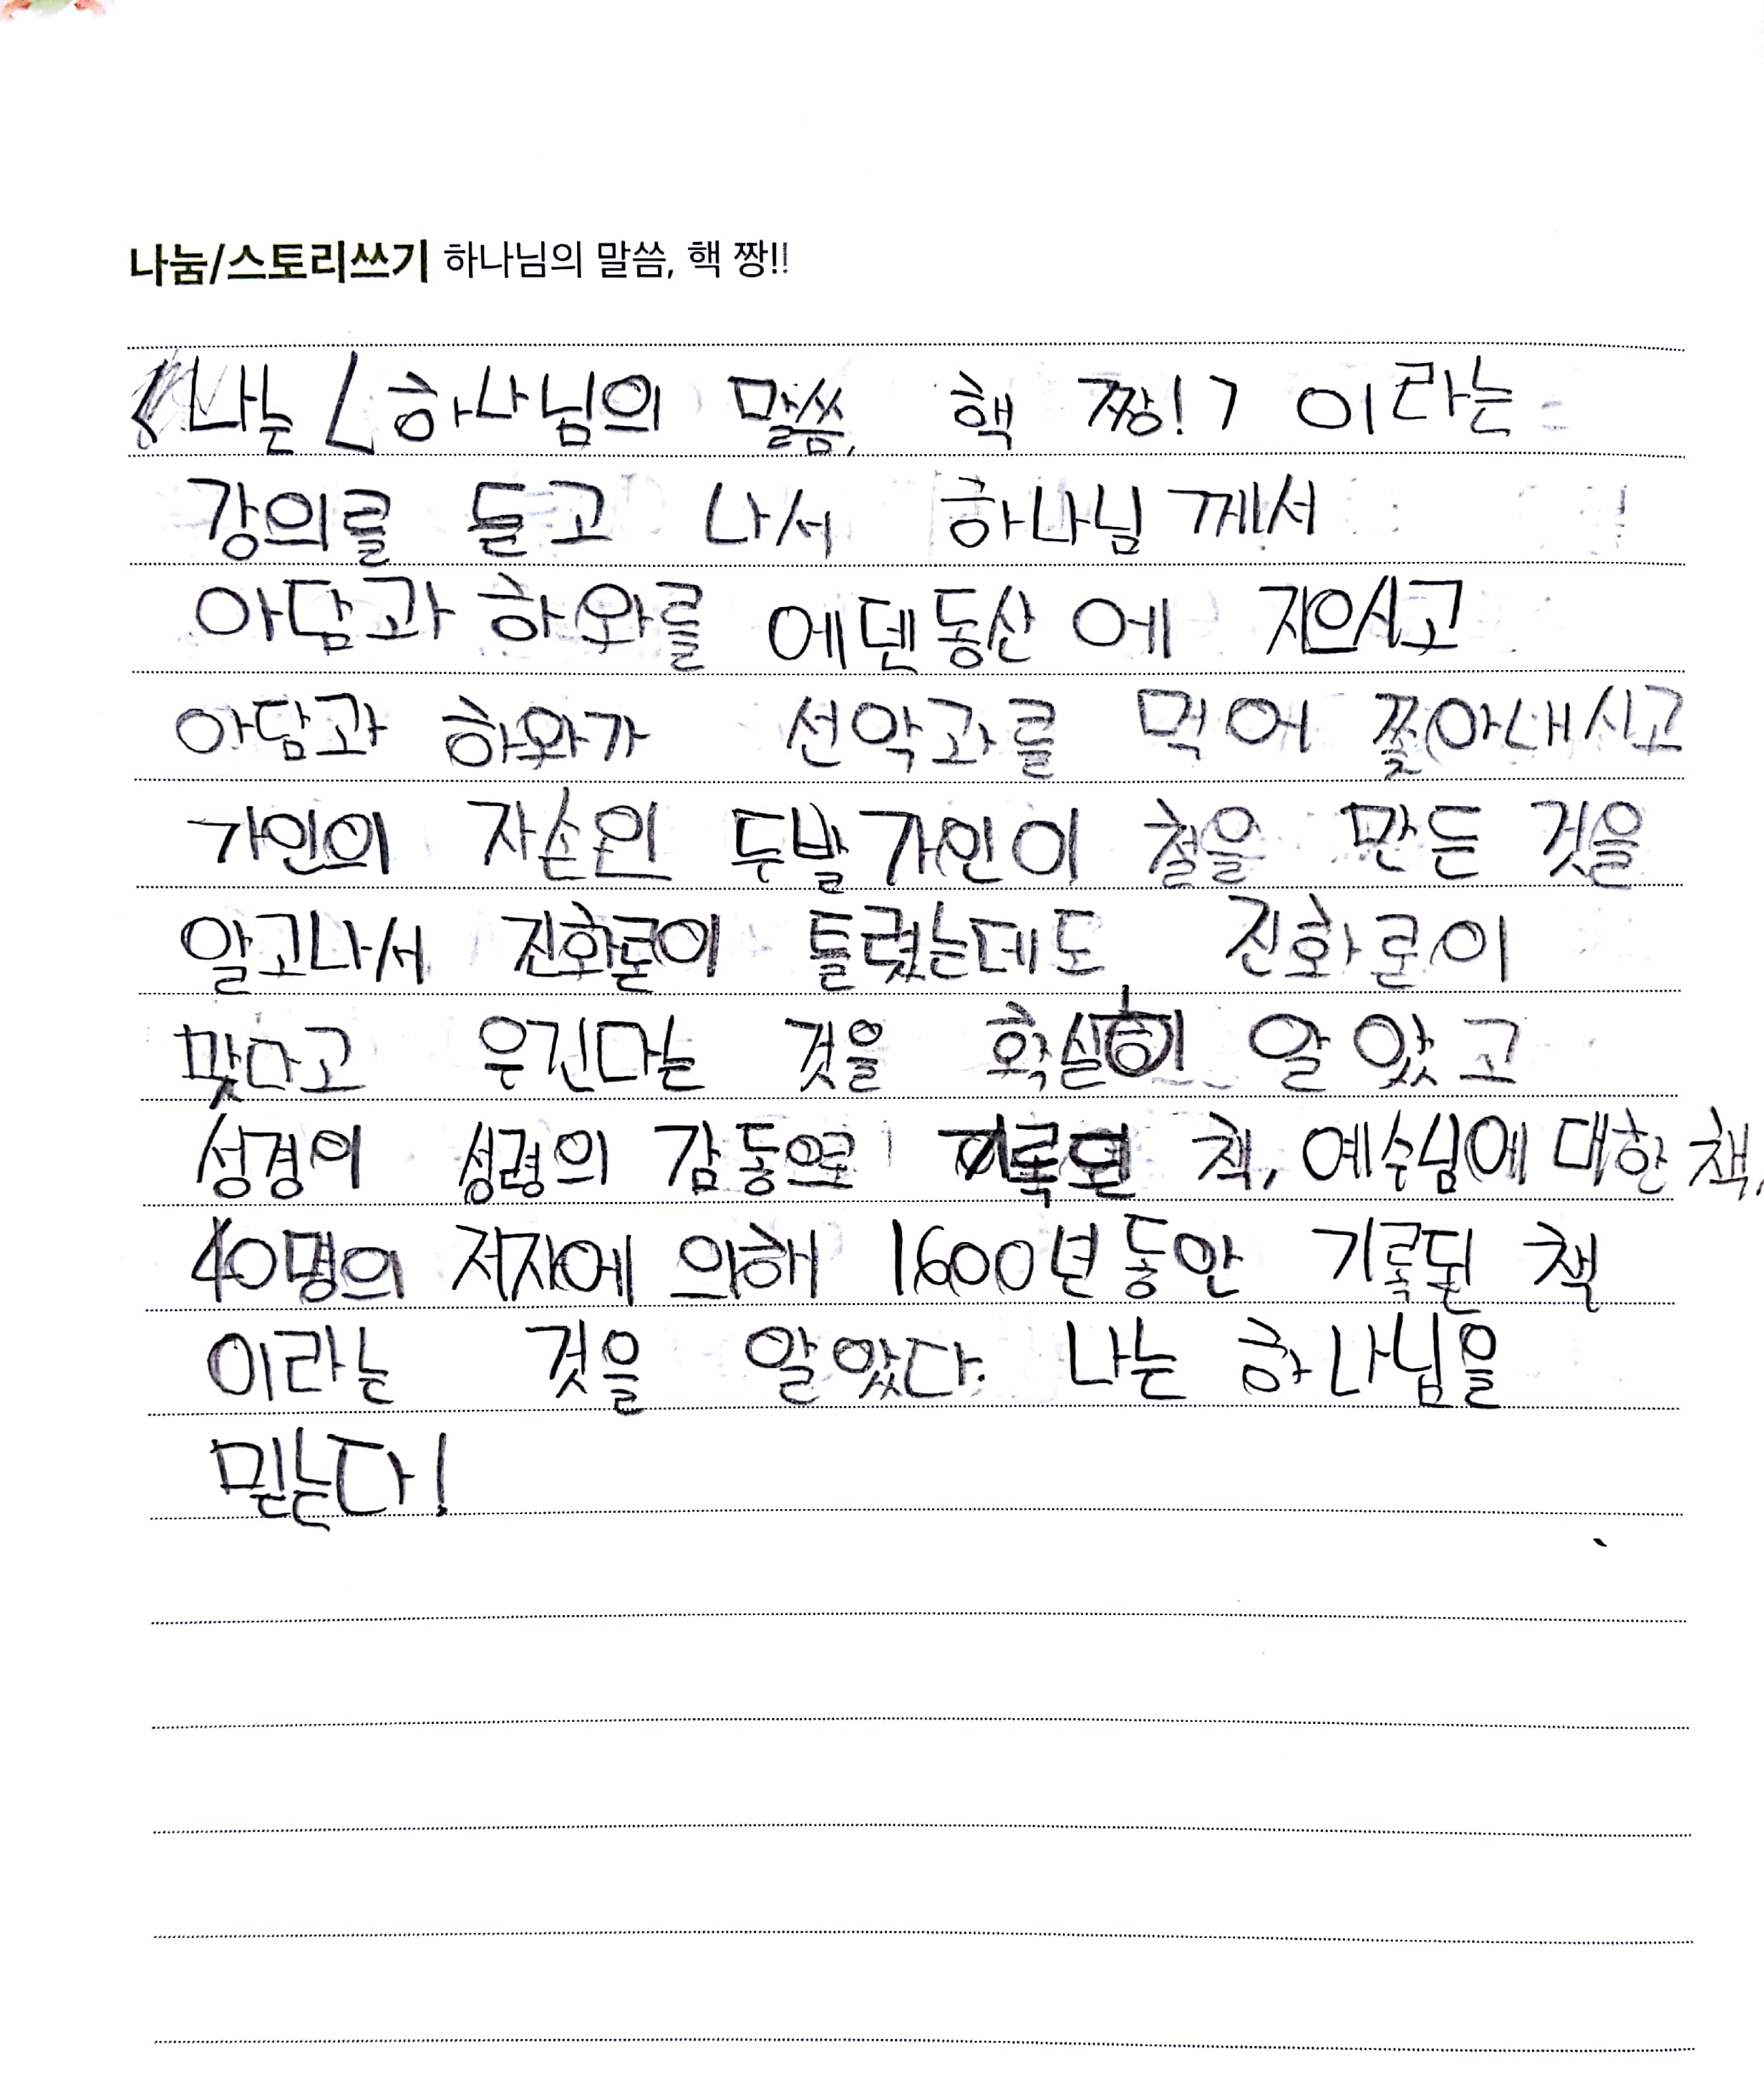 나눔/스토리쓰기 하나님의 말씀, 핵 짱!!
나는 <하나님의 말씀, 핵 짱!> 이라는
강의를 듣고 나서 하나님께서
아담과 하와를 에덴동산에 지으시고
아담과 하와가 선악과를 먹어 쫓아내시고
가인의 자손인 두발가인이 철을 만든 것을
알고나서 진화론이 틀렸는데도 진화론이
맞다고 우긴다는 것을 확실히 알았고
성경이 성령의 감동으로 기록된 책, 예수님에 대한 책,
40명의 저자에 의해 1600년동안 기록된 책
이라는 것을 알았다. 나는 하나님을
믿는다!